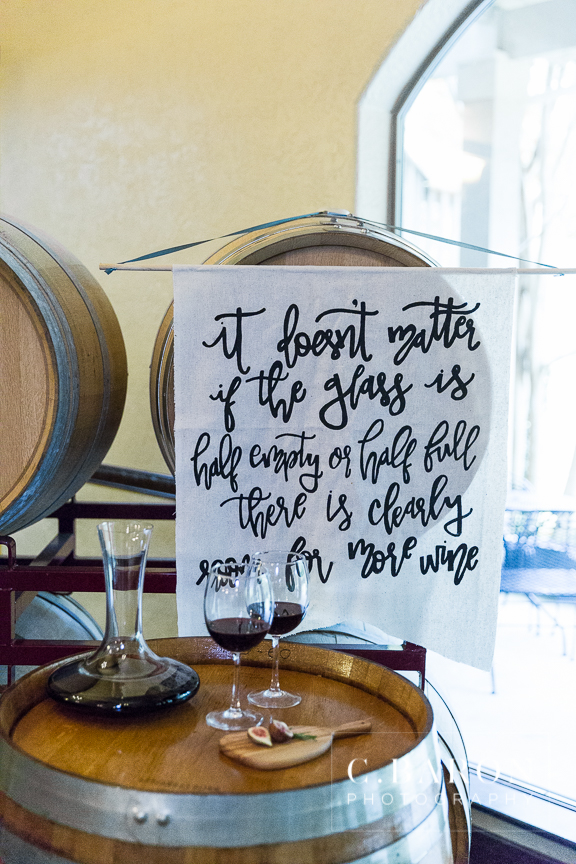 it doesn't matter
if the glass is
half empty or half full
there is clearly
room for more wine
C. BARON
PHOTOGRAPHY